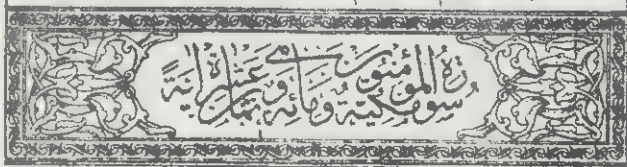 سورة المؤمنون مكية ومائة وثمانى عشرة اية